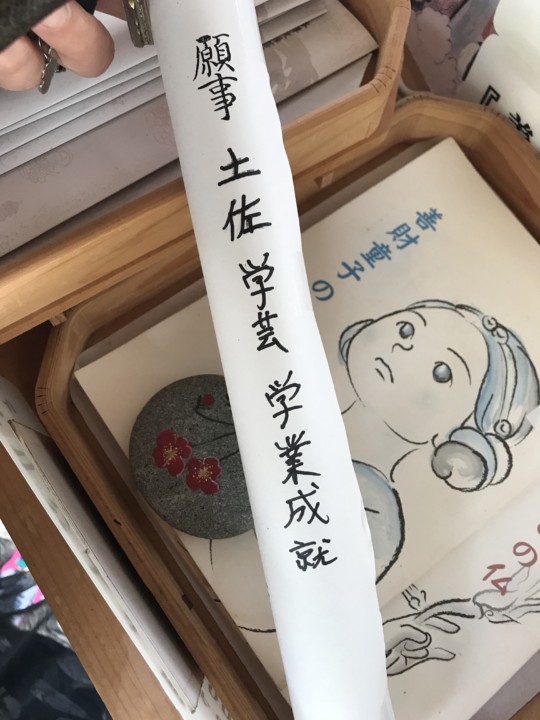 願事 土佐 学芸 学業成就
善財童子の